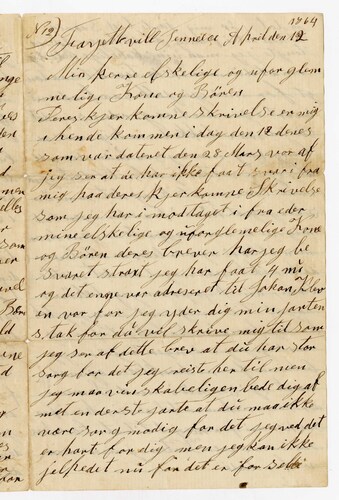 No 12) 1864
Fayettvill Tennesee April den 12
Min kere elskelige og uforglem
melige Kone og Bören
Deres kjerkomne skrivelse er mig
i hende kommen i dag den 12 denes
som var dateret den 28 Mars vor af
jeg ser at de har ikke faat svar i fra
mig paa deres kjerkomne Skrivelse
som jeg har i modtaget i fra eder
mine elskelige og uforglemelige Kone
og Bören deres brever har jeg be
svaret straxt jeg har faat 4 nu
og det enne var adreseret til Johan
en var for jeg yder dig min jartens
tak for du vil skrive mig til som
jeg ser af dette brev at du har stor
sorg for det jeg reiste her til men
jeg maa venskabeligen bede dig af
met en derste jarte at du maa ikke
være sorgmodig for det jeg ved det
er hart for dig men jeg kan ikke
jelpe det nu for det er for